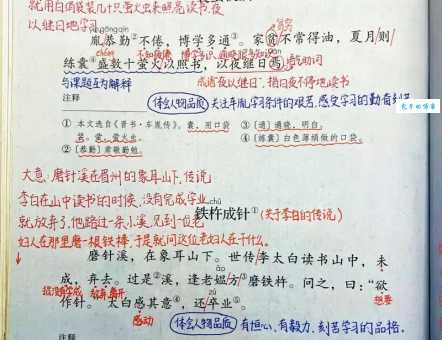 就用白绢袋装几十只萤火虫来照亮读书,夜
以继日地学习
胤恭勤②不倦，博学多通③。家贫不常得油，夏月/则
练囊④盛数十萤火以照书，以夜继日焉。
语气助词
与课题互为解释
成语"夜以继日",指日夜不停地读书
注释
体会人物品质 关注车胤学习条件的艰苦,感受学习的勤奋刻苦
① 本文选自《晋书·车胤传》。囊，用口袋
装。萤，萤火虫。
②〔恭勤〕肃敬勤勉。
③〔通〕通晓，明白。
④〔练囊〕白色薄绢做的口袋。
大意:磨针溪在眉州的象耳山下,传说
李白在山中读书的时候,没有完成学业
就放弃了,他路过一条小溪,见到一位老
妇人在那里磨一根铁棒,于是就问这位老妇人在干什么。
铁杵成针① (关于李白的传说)
磨针溪，在象耳山下。世传/李太白读书山中，未
成，弃去。过是②溪，逢老媪/方③磨铁杵。问之，曰："欲
作针。"太白感其意④，还卒业⑤。
想要
感动
体会人物品质 有恒心、有毅力、刻苦学习的品格。
注释